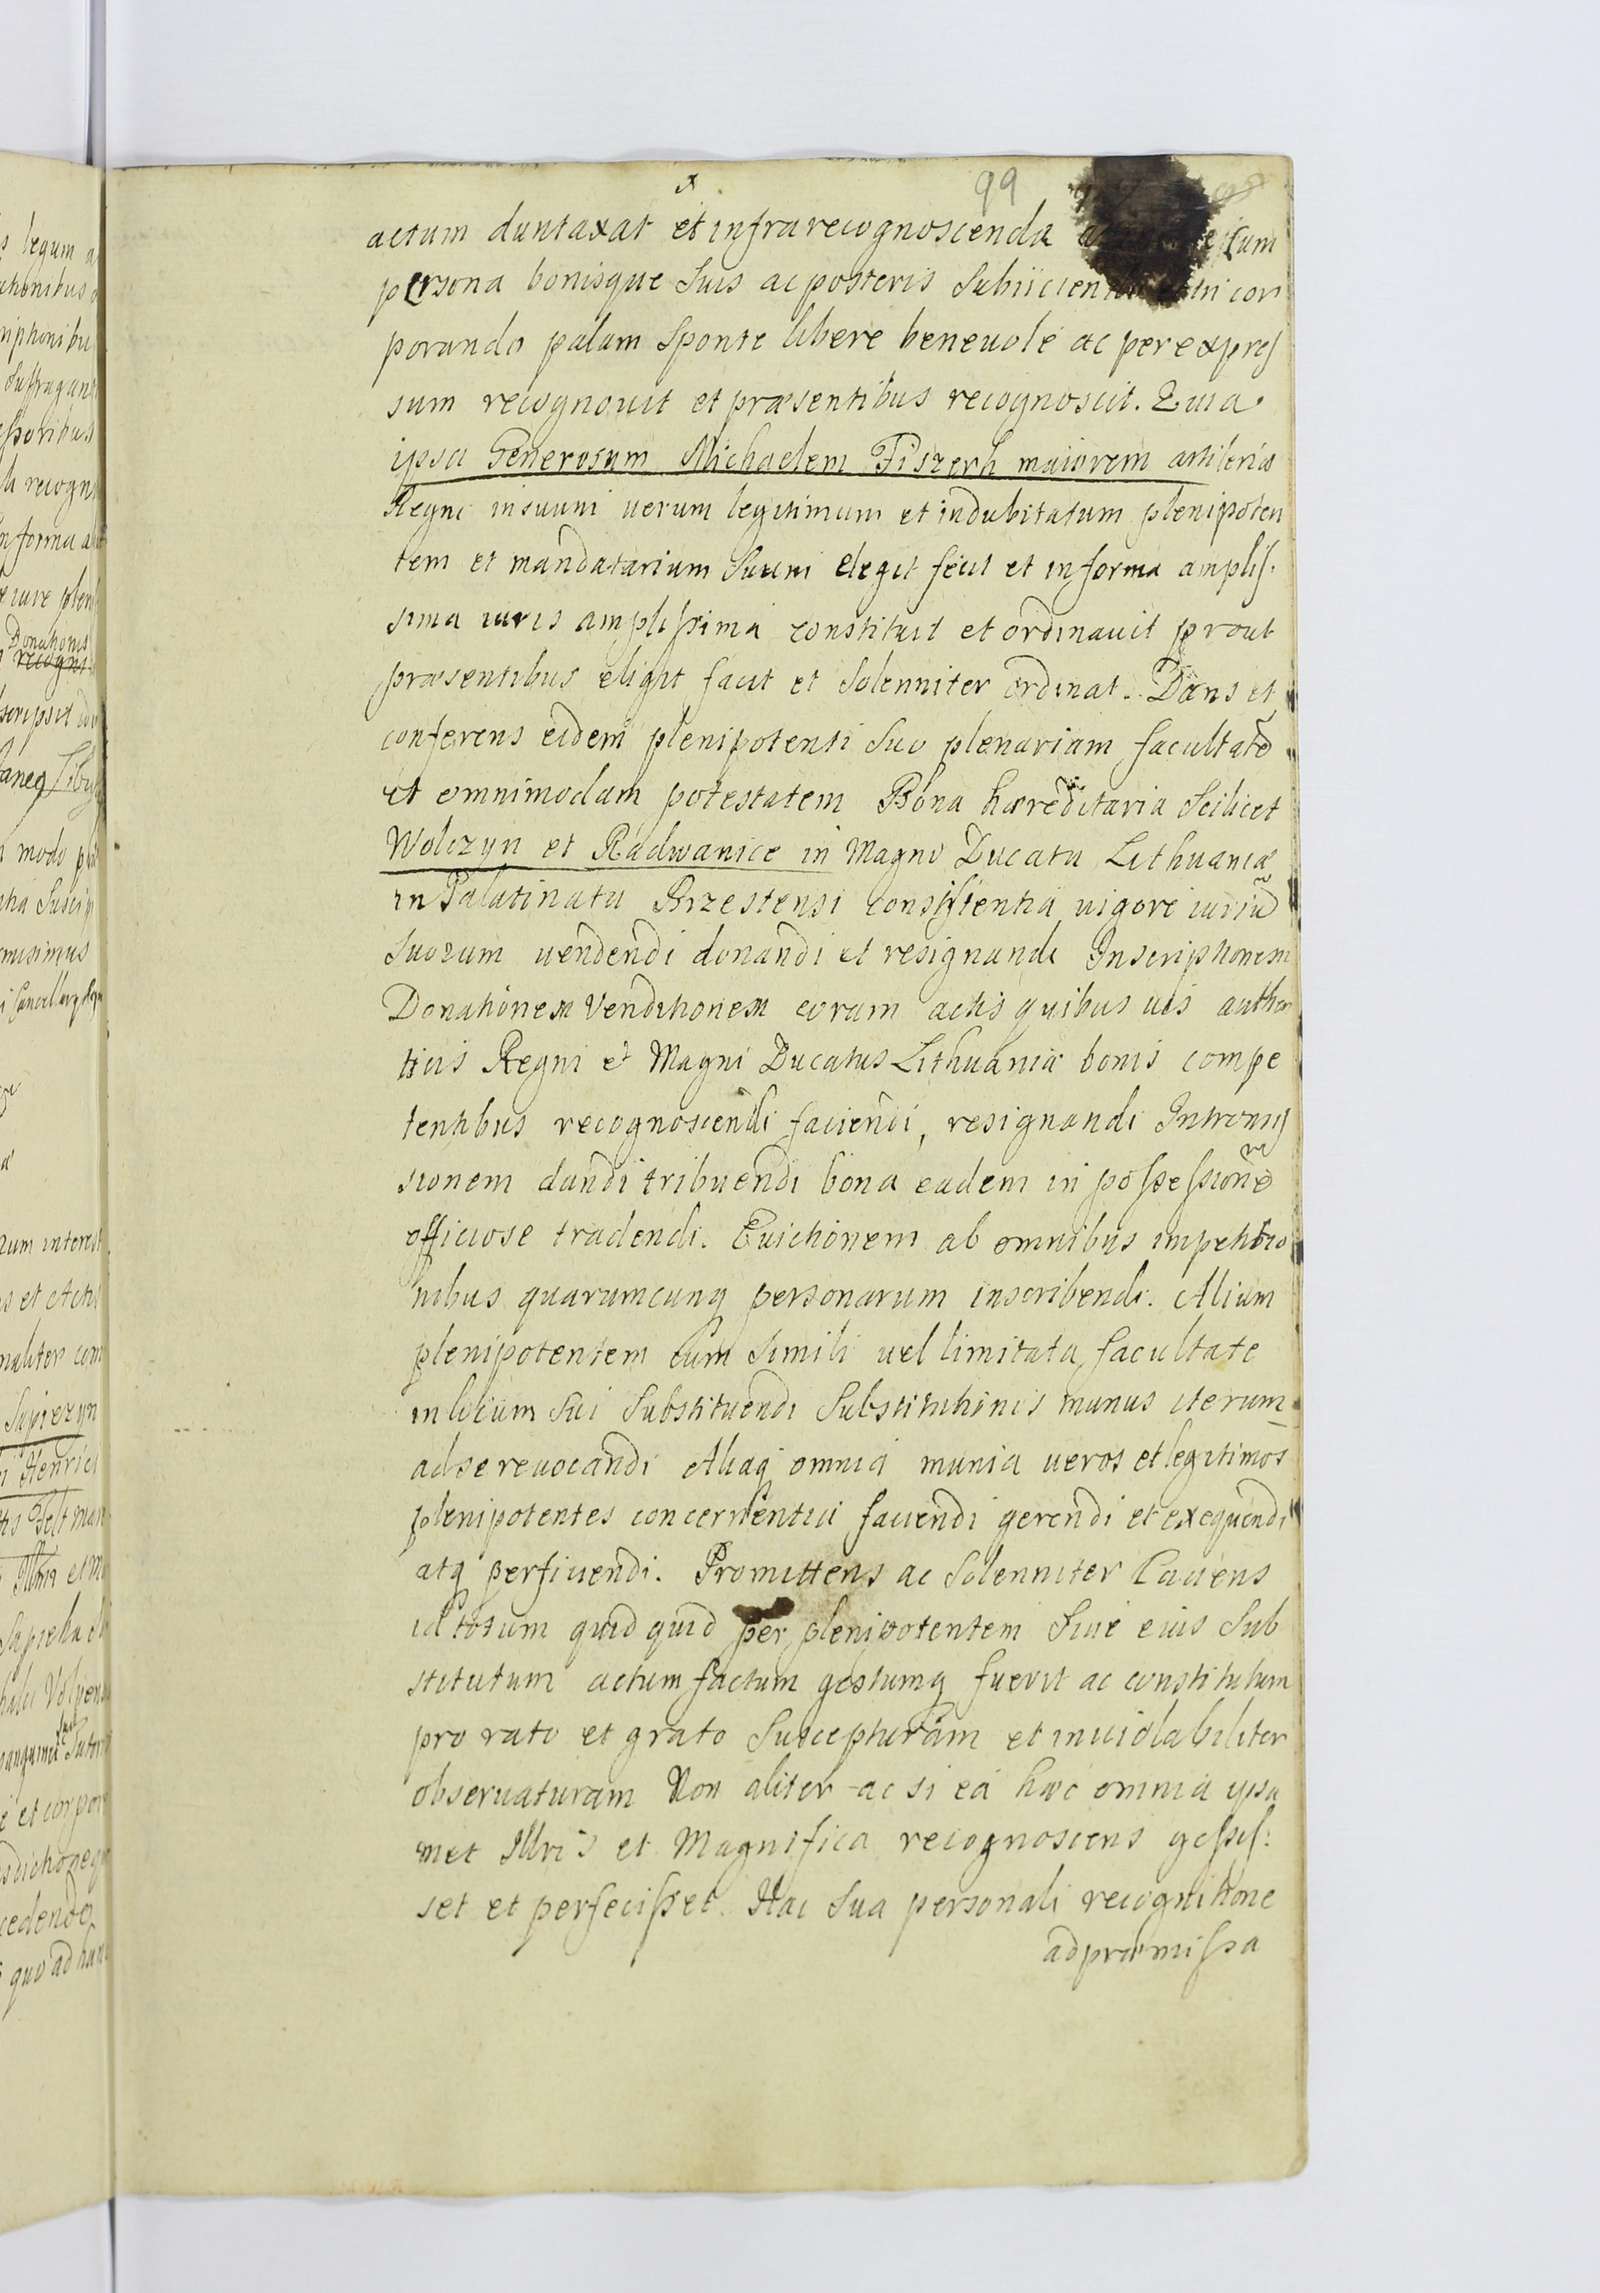 99
actum duntaxat et infrarecognoscenda
persona bonisque Suis ac posteris incor
porando palam Sponte libere beneuole ac per expres
sum recognouit et præsentibus recognoscit. Quia
ipsa Generosum Michaelem Fiszerh maiorem artileriæ
Regni insuum uerum legitimum et indubitatum plenipoten
tem et mandatarium Suum elegit fecit et informa amplis.
sima iuris amplissima constituit et ordinauit prout
præsentibus eligit facit et Solenniter ordinat. Dans et
conferens eidem plenipotenti Suo plenariam facultatē
et omnimodam potestatem Bona hæreditaria Scilicet
Wolczyn et Radwanice in Magno Ducatu Lithuaniæ
in Palatinatu Brzestensi consistentia uigore iuriū
Suorum uendendi donandi et resignandi Inscriptionem
Donationem Venditionem coram actis quibus uis authen
ticis Regni et Magni Ducatus Lithuaniæ bonis compe
tentibus recognoscendi faciendi, resignandi Intromis
sionem dandi tribuendi bona eadem in possessionē
officiose tradendi. Euictionem ab omnibus impetitio
nibus quarumcunq personarum inscribendi. Alium
plenipotentem cum Simili uel limitata facultate
in locum Sui Substituendi Substitutionis munus iterum
adse reuocandi Aliaq omnia munia ueros et legitimos
plenipotentes concernentia faciendi gerendi et exequendi
atq perficiendi. Promittens ac Solenniter Cauens
id totum quidquid per plenipotentem Siue eius Sub
stitutum actum factum gestumq fuerit ac constitutum
pro rato et grato Suscepturam et inuiolabiliter
obseruaturam Non aliter ac si ea hæc omnia ipsa
met Illris et Magnifica recognoscens gessis:
set et perfecisset. Hac Sua personali recognitione
ad præmissa